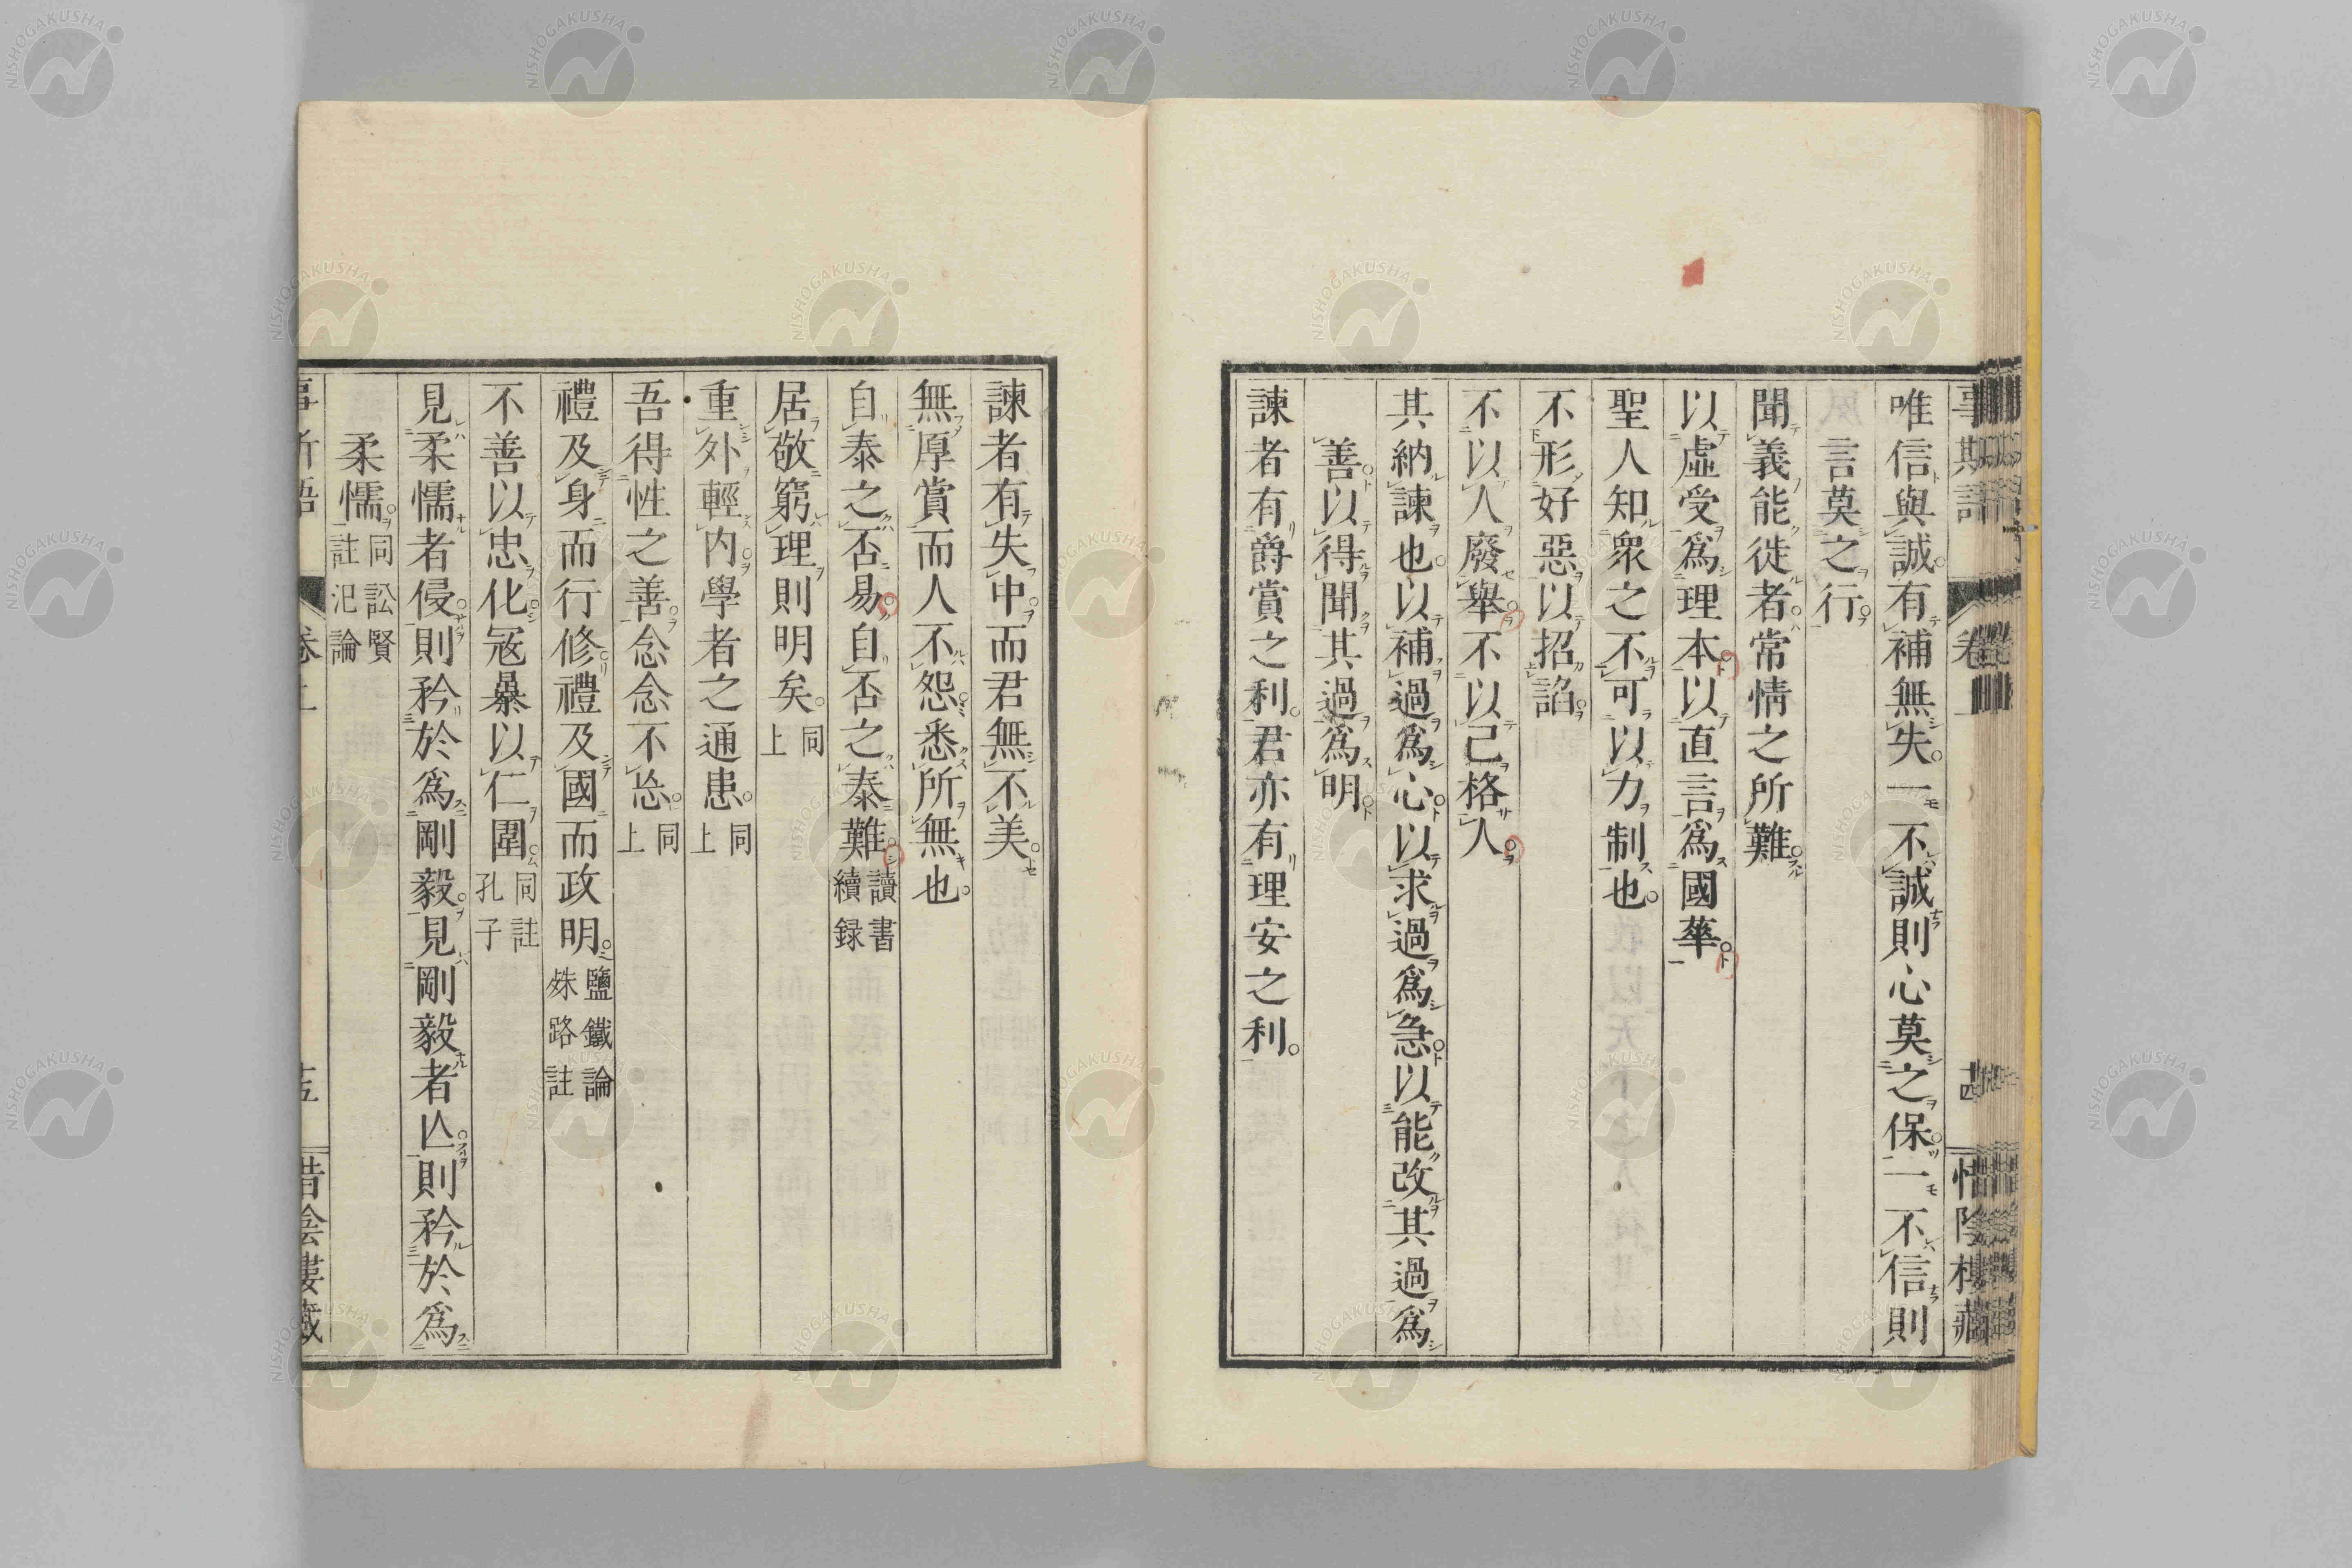 唯信與誠有補無失一不誠則心莫之保一不信則
言莫之行
聞義能徙者常情之所難
以虛受爲理本以直言爲國華
聖人知衆之不可以力制也
不形好惡以招諂
不以人廢舉不以己格人
其納諫也以補過爲心以求過爲急以能改其過爲
善以得聞其過爲明
諫者有爵賞之利君亦有理安之利
諫者有失中而君無不美
無厚賞而人不怨悉所無也
自泰之否易自否之泰難 讀書續録
居敬窮理則明矣 同上
重外輕内學者之通患 同上
吾得性之善念念不忩 同上
禮及身而行修禮及國而政明 鹽鐵論姝路註
不善以忠化冦暴以仁圍 同註孔子
見柔懦者侵則矜於爲剛毅見剛毅者亾則矜於爲
柔懦 同訟賢註汜論